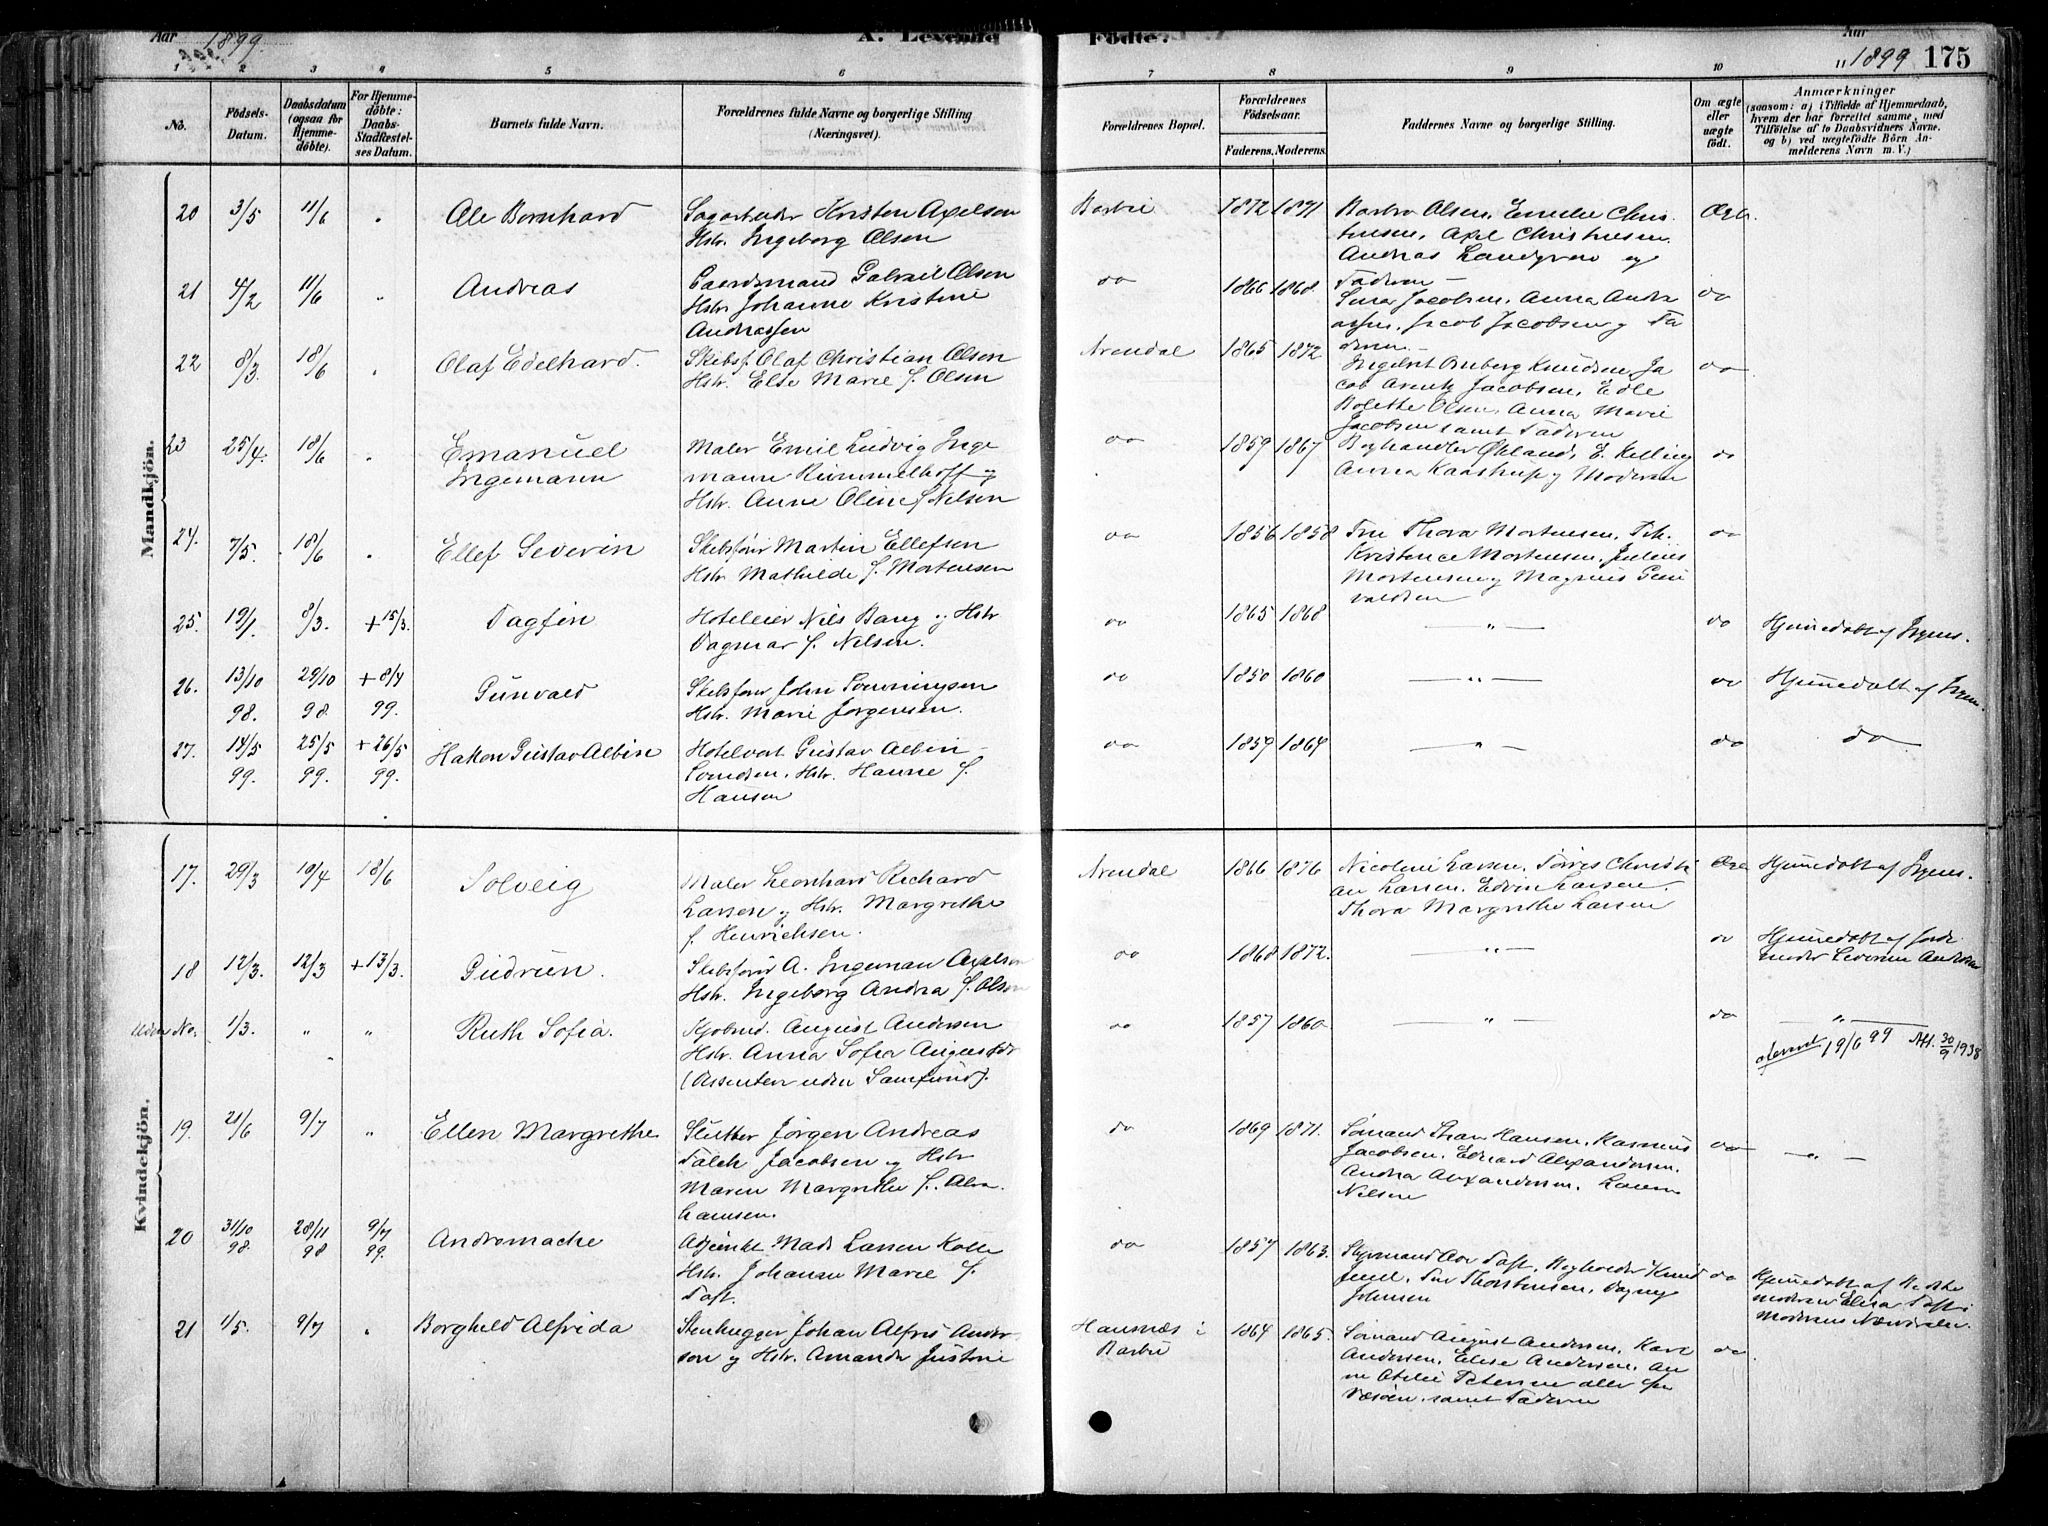 Aar 1899.
A. Levende Födte.
Aar 1899 175
1 2 3 4 5 6 7 8 9 10
No.
Födsels-Datum.
Daabsdatum (ogsaa for Hjemmedöbte).
For Hjemmedöbte: Daabs-Stadfæstelses Datum.
Barnets fulde Navn.
Forældrenes fulde Navne og borgerlige Stilling (Næringsvei).
Forældrenes Bopæl.
Forældrenes Födselsaar.
Faderens. Moderens.
Faddernes Navne og borgerlige Stilling.
Om ægte eller uægte födt.
Anmærkninger
(saasom: a) i Tilfælde af Hjemmedaab, hvem der har forrettet samme, med Tilföielse af to Daabsvidners Navne. og b) ved uægtefödte Börn Anmelderens Navn m. V.)
Mandkjön.
20 3/5 11/6 " Ole Bernhard
Kristen Axelsen
Hstr. Ingeborg Olsen
Barbu 1872 1871
Barbra Olsen, Emelie Christensen, Axel Christensen
Andreas Landgren og Faderen
21 4/2 11/6 " Andreas
Gaardsmand Gabriel Olsen
Hstr. Johanne Kristine
Andreassen
do 1866 1868
Jacobsen, Anna Andreassen, Jacob Jacobsen og Faderen
do
22 8/3. 18/6 " Olaf Edelhard.
Skibsf. Olaf Christian Olsen
Hstr. Else Marie f. Olsen
Arendal 1865 1872
Knudsen, Jacob Arentz Jacobsen, Edle
Bolette Olsen, Anna Marie
Jacobsen samt Faderen
do
23 25/4. 18/6 " Emanuel
Ingemann
Maler Emil Ludvig Ingemann Rummelhoff og
Hstr. Anne Oline f. Nilsen
do 1859 1867
Boghandler Økland, E. Kelling
Anna Kaastrup og Moderen
do
24. 7/5. 18/6 " Ellef Severin
Skibsfører Martin Ellefsen
Hstr. Mathilde f. Mortensen
do 1856 1858
Fru Thora Mortensen, Frk.
Kristence Mortensen, Julius
Mortensen og Magnus
do
25. 19/1. 8/3. + 15/3. Dagfin
Hoteleier Nils Bang og Hstr
Dagmar f. Nilsen.
do 1865 1868 — " — do
Hjemmedøbt af Irgens.
26. 13/10 98. 29/10 98. + 8/4 99. Gunvald
Skibsfører John Sønningsen
Hstr. Marie Jørgensen.
do 1850 1860 — " — do
Hjemmedøbt af Irgens.
27. 14/5 99. 25/5 99. + 26/5 99. Hakon Gustav Albin
Hotelvert Gustav Albin
Svendsen, Hstr. Hanne f.
Hansen
do 1859 1864 — " — do do
Kvindekjön.
17. 29/3 10/4 18/6 Solveig
Maler Leonhard Richard
Larsen og Hstr. Margrethe
f. Henrichsen.
Arendal 1866 1876
Nicoline Larsen, Tørres Christian Larsen, Edvin Larsen,
Thora Margrethe Larsen
Hjemmedøbt af Irgens.
18 12/3. 12/3 + 13/3. Gudrun.
Skibsfører A. Ingeman Axelsen
Hstr. Ingeborg Andrea f. Olsen
do 1868 1872. — " — do
Hjemmedøbt af Jordemoder
Uden No. 1/3. " " Ruth Sofia.
Kjøbmd. August Andersen
Hstr. Anna Sofia
(Dissenter uden Samfund).
do 1857 1860 — " — do
19/6 99 Att. 30/9 1938
19. 21/6 9/7 " Ellen Margrethe
Slutter Jørgen Andreas
Falck Jacobsen og Hstr
Maren Margrethe f. Abrahamsen.
do 1869 1871.
Sømand Hansen, Rasmus
Jacobsen, Edvard Alexandersen,
Andrea Alexandersen,
Nilsen
do — " —
20 31/10 98. 28/11 98 9/7 99. Andromache
Adjunkt Mads Larsen Kolle
Hstr. Johanne Marie f.
Toft.
do 1857 1863.
Styrmand Toft, Bogholder Knud
Fru Thorstensen, Dagny
Johnsen
do
Hjemmedøbt af Bedstemoderen Elisa Toft i
Moderens Nærværelse.
21 1/5. 9/7 " Borghild Alfrida
Stenhugger Johan Alfred Anderson og Hstr. Amanda Justine
Havsnæs i
Barbu 1864 1865.
Sømand August Andersen, Karl
Andersen, Elise Andersen,
Petersen alle
samt Faderen
do